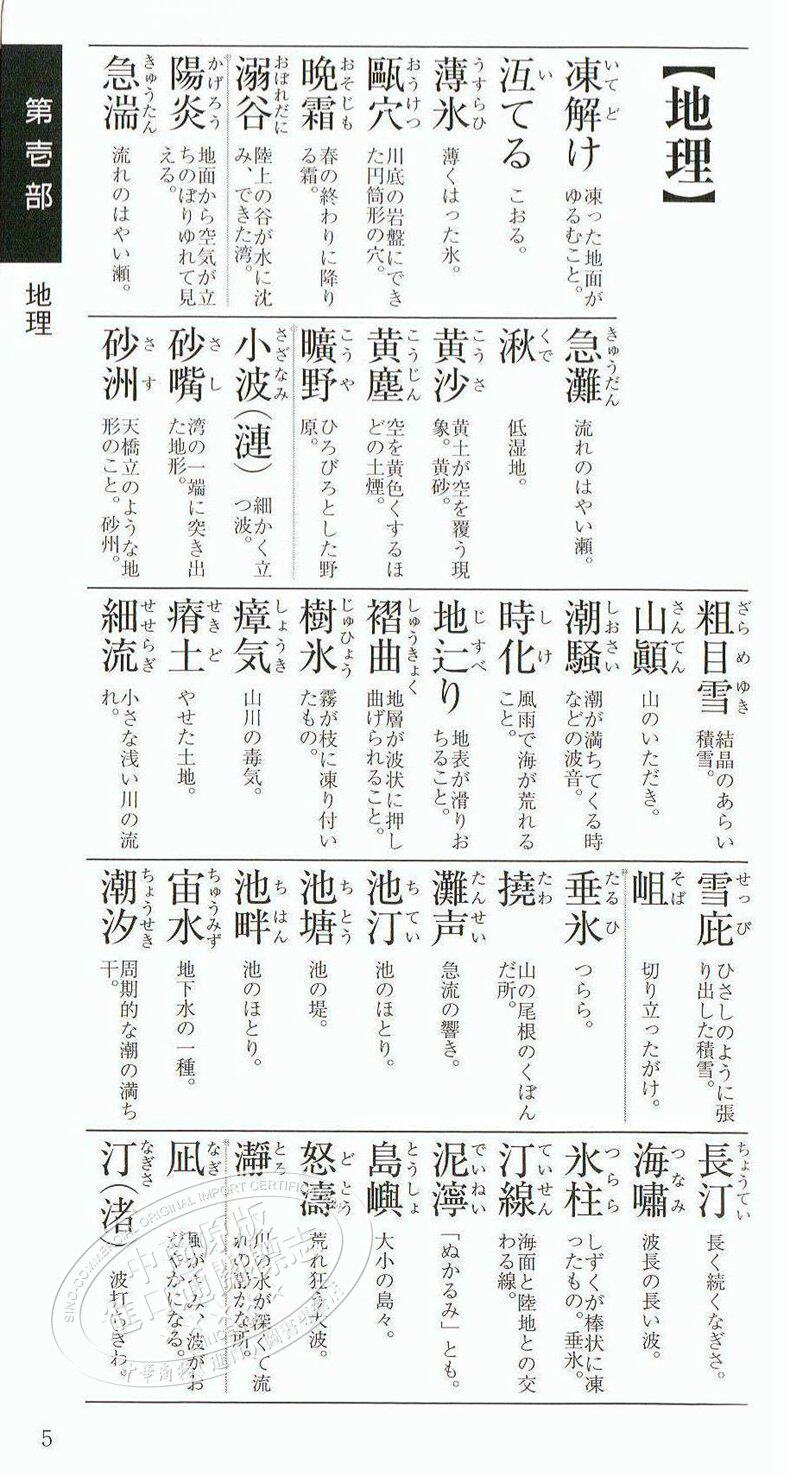 第壱部
地理
【地理】
凍解け いてど 凍った地面がゆるむこと。
冱てる い こおる。
薄氷 うすらひ 薄くはった氷。
甌穴 おうけつ 川底の岩盤にできた円筒形の穴。
晩霜 おそじも 春の終わりに降りる霜。
溺谷 おぼれだに 陸上の谷が水に沈み、できた湾。
陽炎 かげろう 地面から空気が立ちのぼりゆれて見える。
急湍 きゅうたん 流れのはやい瀬。
急灘 きゅうだん 流れのはやい瀬。
湫 くで 低湿地。
黄沙 こうさ 黄土が空を覆う現象。黄砂。
黄塵 こうじん 空を黄色くするほどの土煙。
曠野 こうや ひろびろとした野原。
小波(漣) さざなみ 細かく立つ波。
砂嘴 さし 湾の一端に突き出た地形。
砂洲 さす 天橋立のような地形のこと。砂州。
粗目雪 ざらめゆき 結晶のあらい積雪。
山顚 さんてん 山のいただき。
潮騒 しおさい 潮が満ちてくる時などの波音。
時化 しけ 風雨で海が荒れること。
地辷り じすべ 地表が滑りおちること。
褶曲 しゅうきょく 地層が波状に押し曲げられること。
樹氷 じゅひょう 霧が枝に凍り付いたもの。
瘴気 しょうき 山川の毒気。
瘠土 せきど やせた土地。
細流 せせらぎ 小さな浅い川の流れ。
雪庇 せっぴ ひさしのように張り出した積雪。
岨 そば 切り立ったがけ。
垂氷 たるひ つらら。
撓 たわ 山の尾根のくぼんだ所。
灘声 たんせい 急流の響き。
池汀 ちてい 池のほとり。
池塘 ちとう 池の堤。
池畔 ちはん 池のほとり。
宙水 ちゅうみず 地下水の一種。
潮汐 ちょうせき 周期的な潮の満ち干。
長汀 ちょうてい 長く続くなぎさ。
海嘯 つなみ 波長の長い波。
氷柱 つらら しずくが棒状に凍ったもの。垂氷。
汀線 ていせん 海面と陸地との交わる線。
泥濘 でいねい 「ぬかるみ」とも。
島嶼 とうしょ 大小の島々。
怒濤 どとう 荒れ狂う大波。
瀞 とろ 川の水が深くて流れの静かな所。
凪 なぎ 風がやみ、波がおだやかになる。
汀(渚) なぎさ 波打ちぎわ。
5